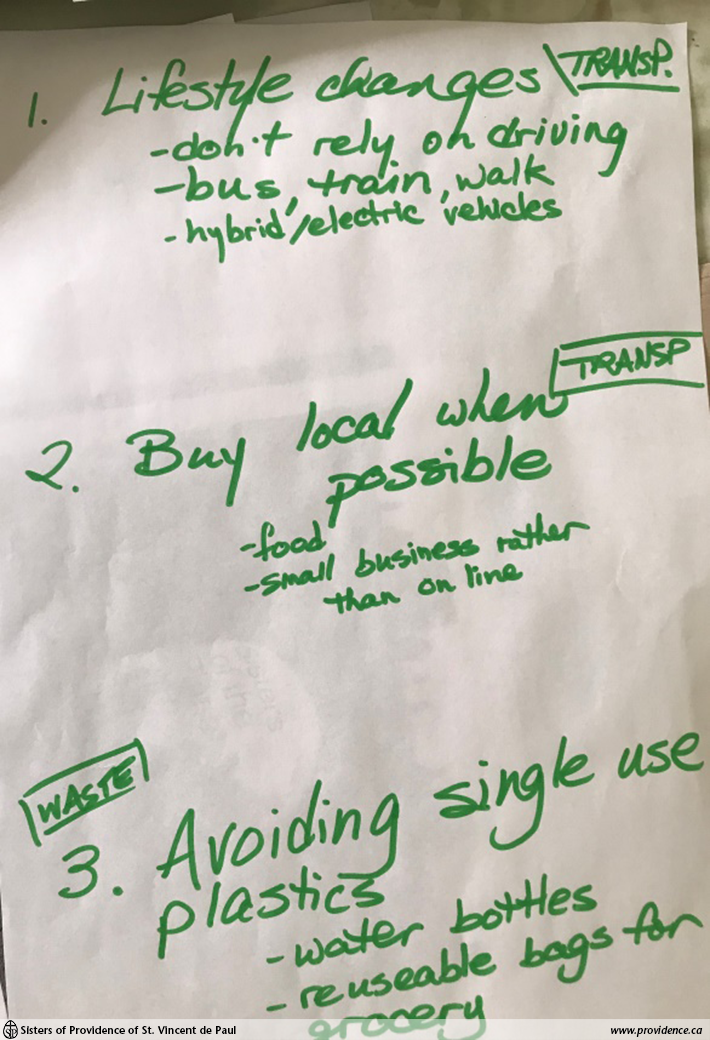 1. Lifestyle changes TRANSP.
-don't rely on driving
-bus, train, walk
-hybrid/electric vehicles
TRANSP
2. Buy local when
possible
-food
-small business rather
than on line
WASTE
3. Avoiding single use
plastics
-water bottles
-reuseable bags for
grocery
Sisters of Providence of St. Vincent de Paul
www.providence.ca